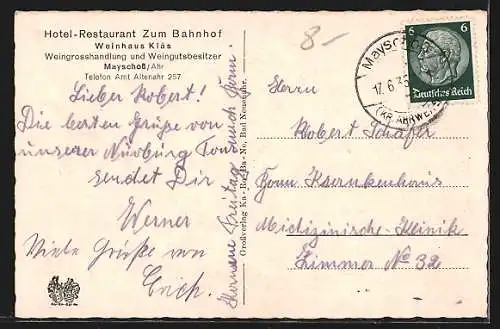 Hotel-Restaurant Zum Bahnhof
Weinhaus Kläs
Weingrosshandlung und Weingutsbesitzer
Mayschoß/Ahr
Telefon Amt Altenahr 257
Lieber Robert!
Die besten Grüße von
unserer Nürburg Tour
sendet Dir
Werner
Viele Grüße von
Erich.
Großverlag Ka-Bu-Ba-Ne, Bad Neuenahr.
8-
Mayschoß
17.6.3
(KR. AHRWEILER)
6 6
Deutsches Reich
Herrn
Robert Schäfer
Bonn Krankenhaus
Medizinische Klinik
Zimmer No 32